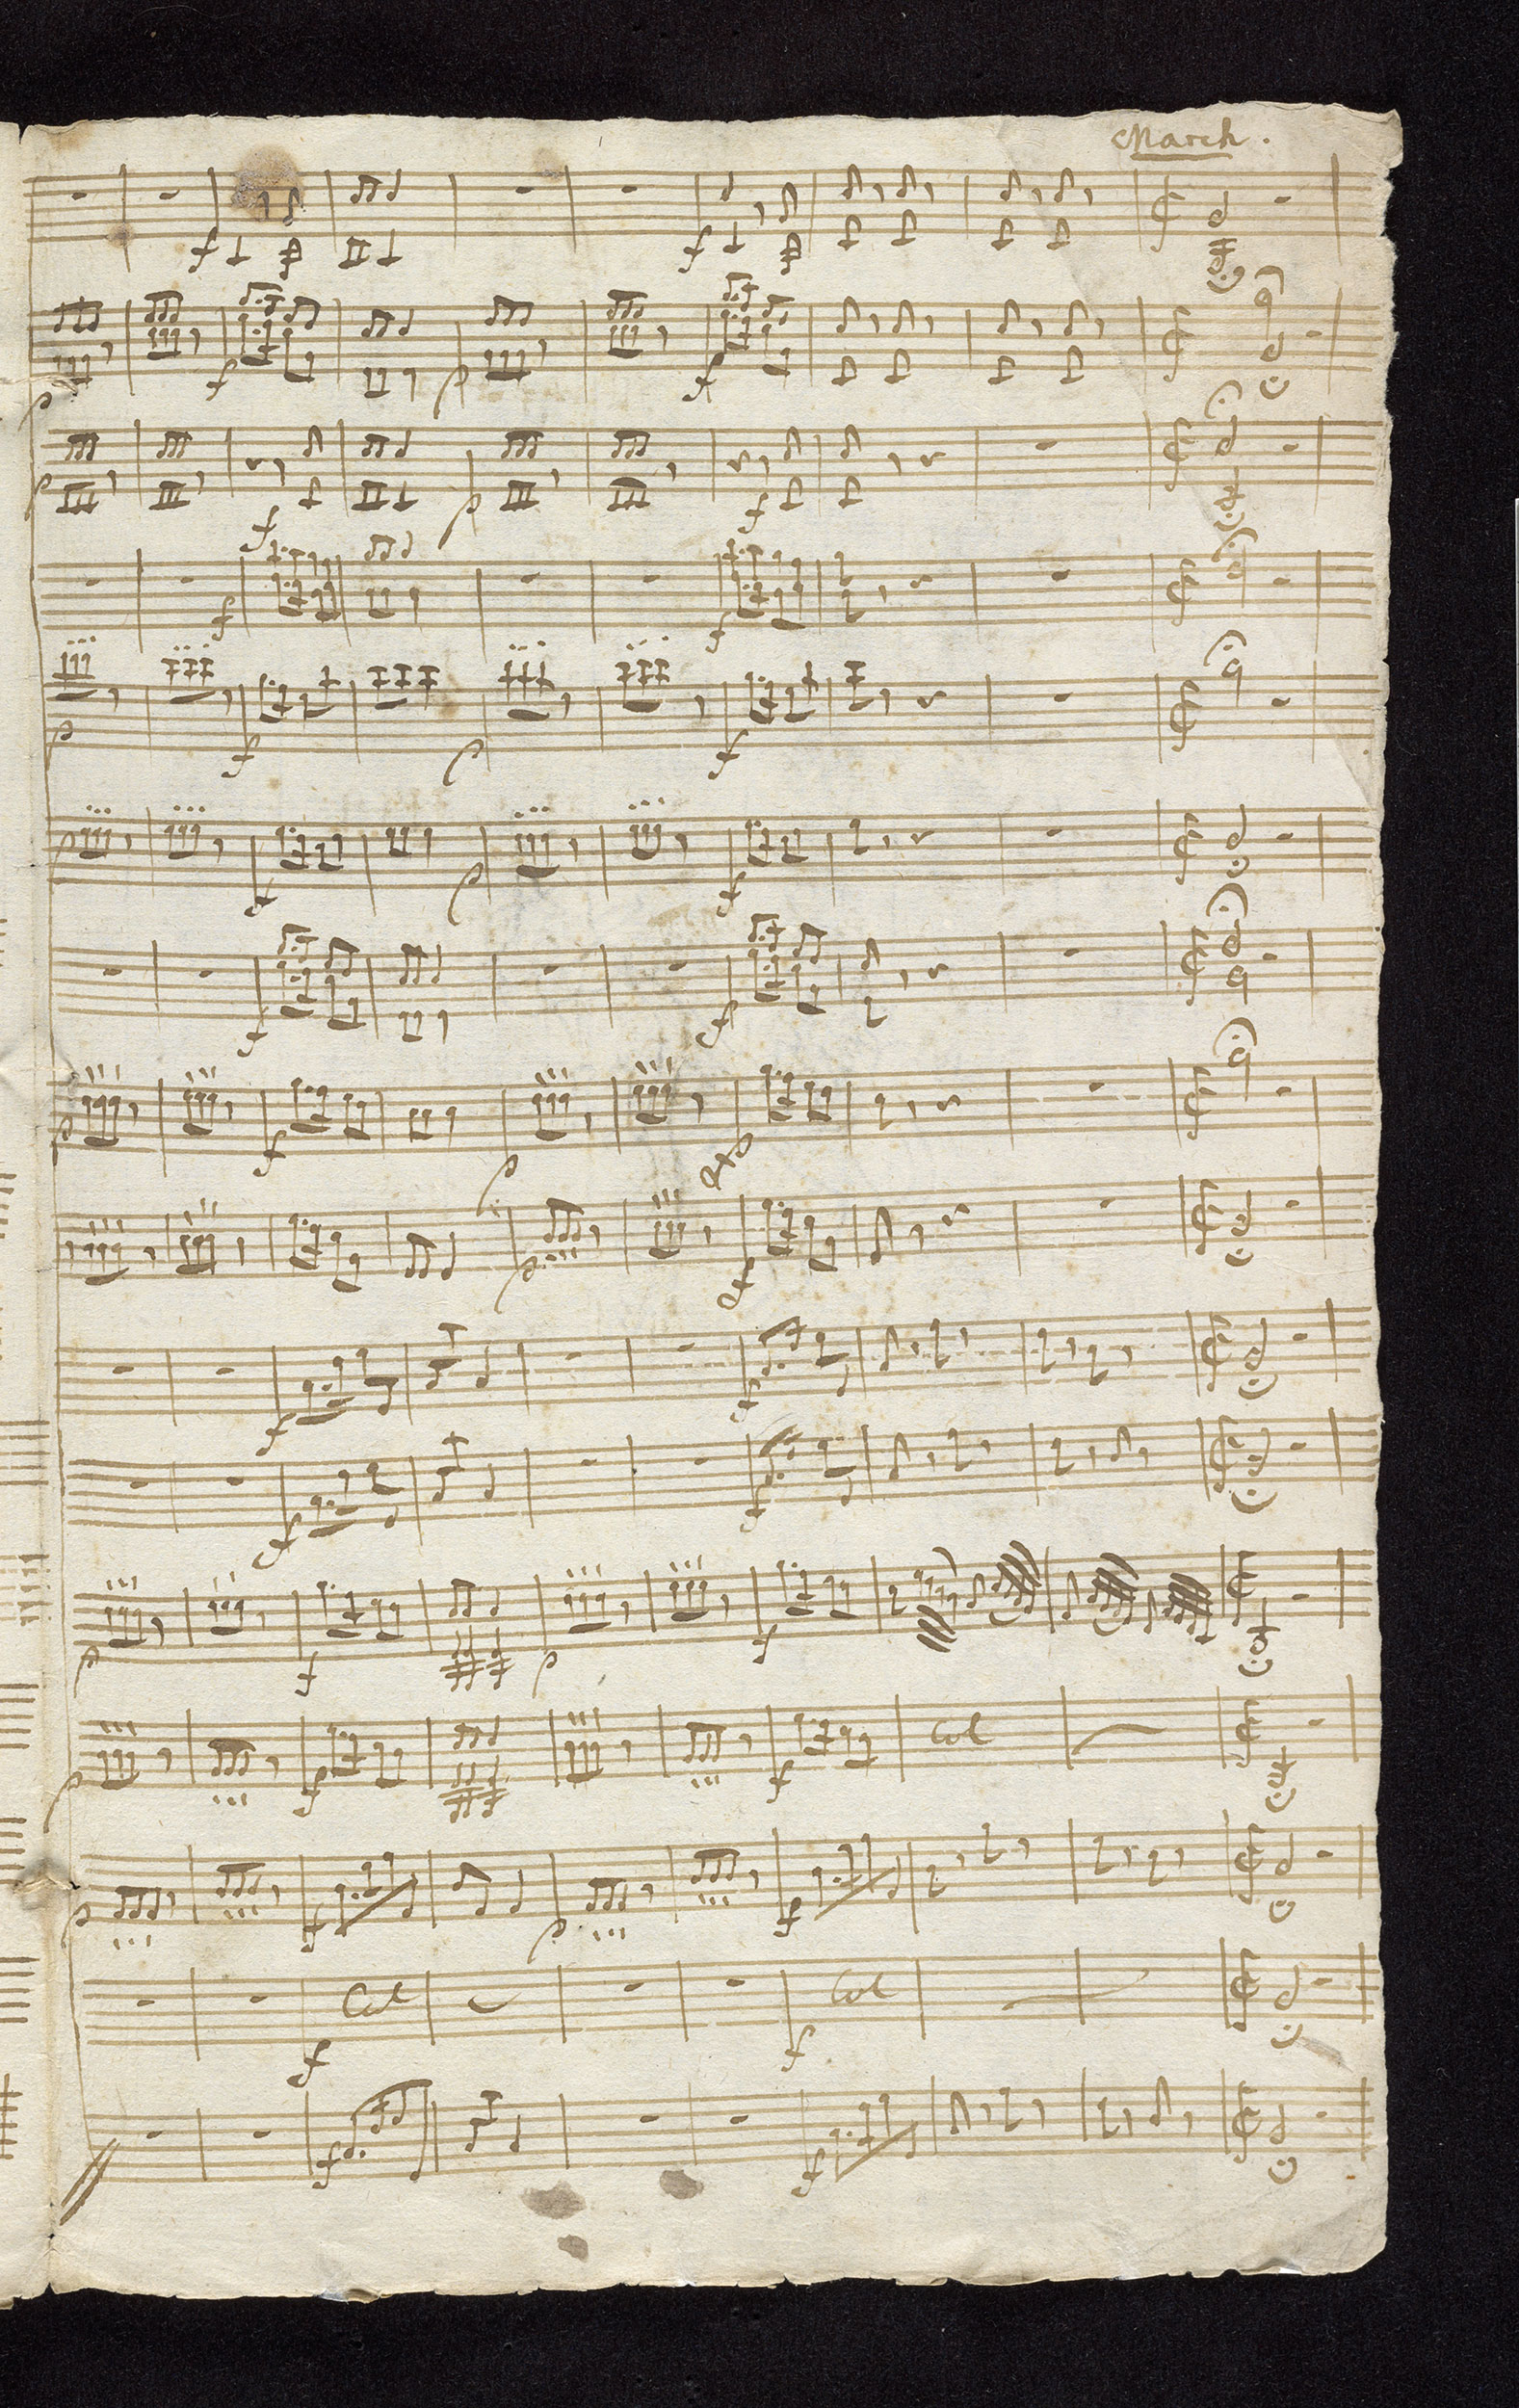 March.
f f
p f p f
p f p f
f f
p f p f
p f p f
f f
p f p
p
f f
f f
p f p f
p f p f Col
p f p f
Col Col
f f
f f